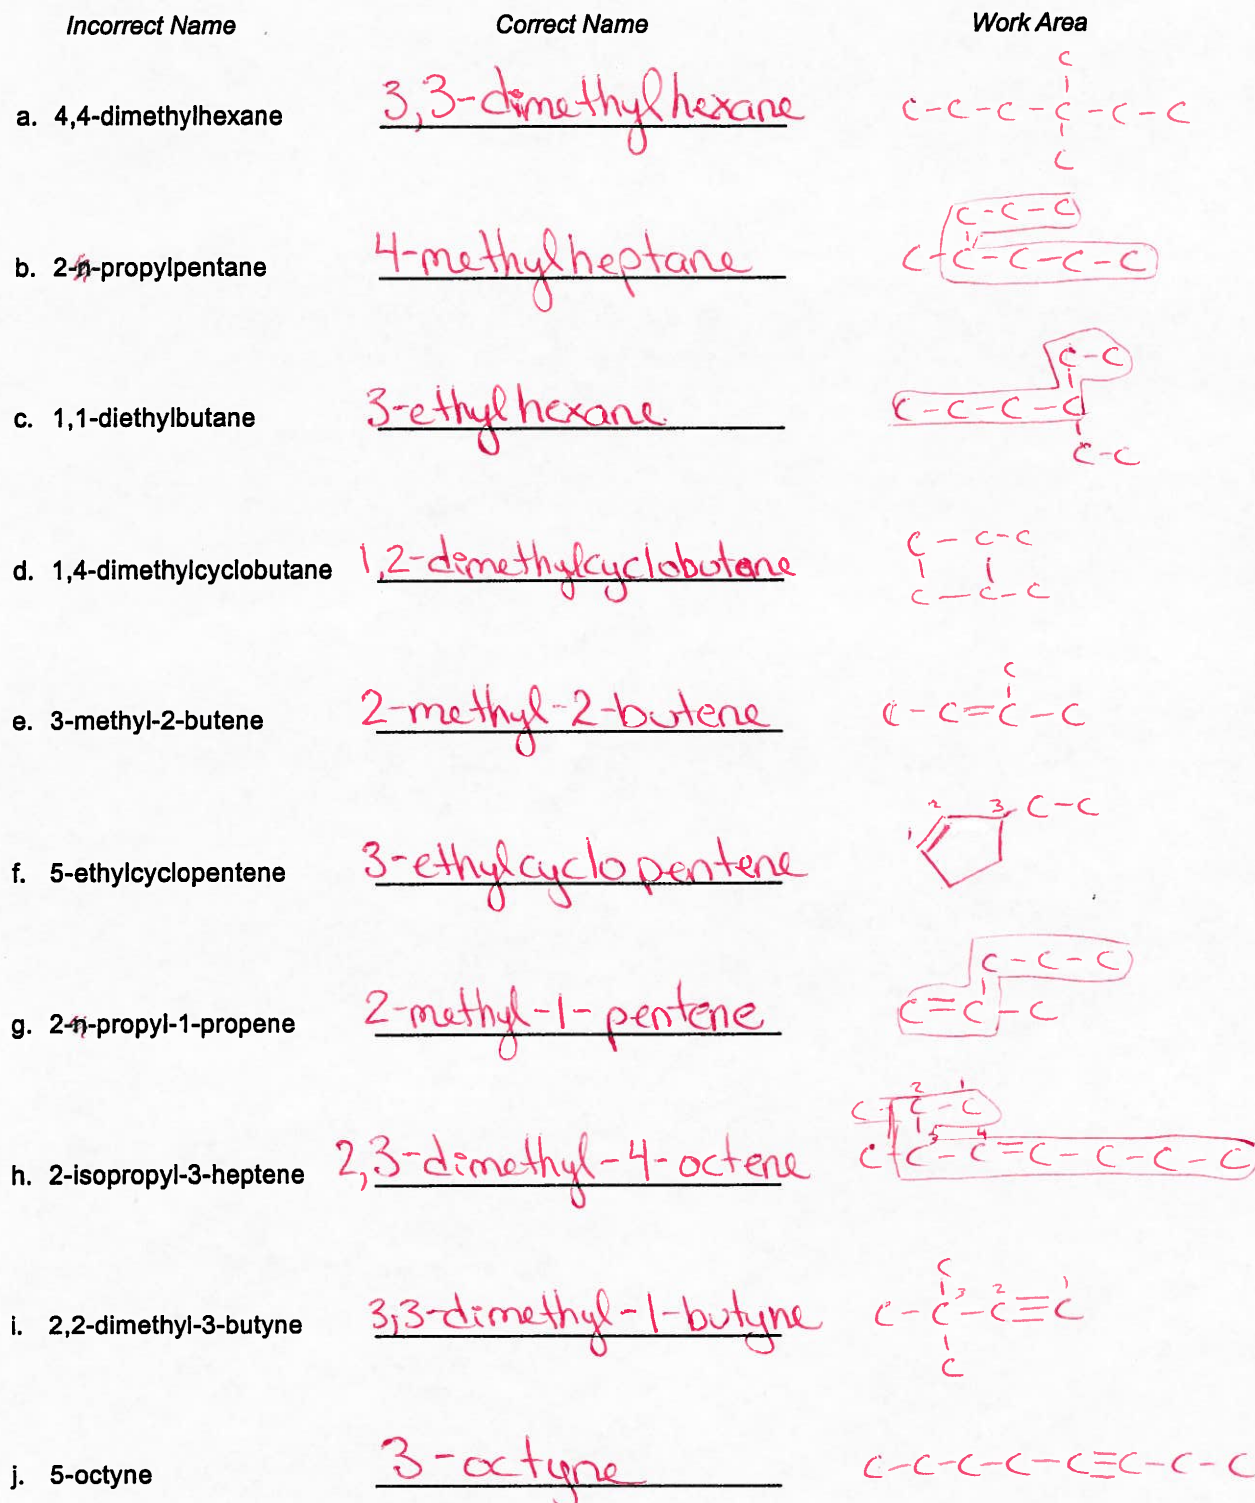 Incorrect Name Correct Name Work Area
a. 4,4-dimethylhexane 3,3-dimethylhexane C-C-C-C-C-C
C
C
b. 2-n-propylpentane 4-methylheptane C-C-C
C-C-C-C-C
c. 1,1-diethylbutane 3-ethylhexane C-C
C-C-C-C
C-C
d. 1,4-dimethylcyclobutane 1,2-dimethylcyclobutane C-C-C
C-C-C
e. 3-methyl-2-butene 2-methyl-2-butene C
C-C=C-C
f. 5-ethylcyclopentene 3-ethylcyclopentene 1 2 3 C-C
g. 2-n-propyl-1-propene 2-methyl-1-pentene C-C-C
C=C-C
h. 2-isopropyl-3-heptene 2,3-dimethyl-4-octene 2 1
C-C-C
3 4
C-C-C=C-C-C-C
i. 2,2-dimethyl-3-butyne 3,3-dimethyl-1-butyne C
3 2 1
C-C-C≡C
C
j. 5-octyne 3-octyne C-C-C-C-C≡C-C-C